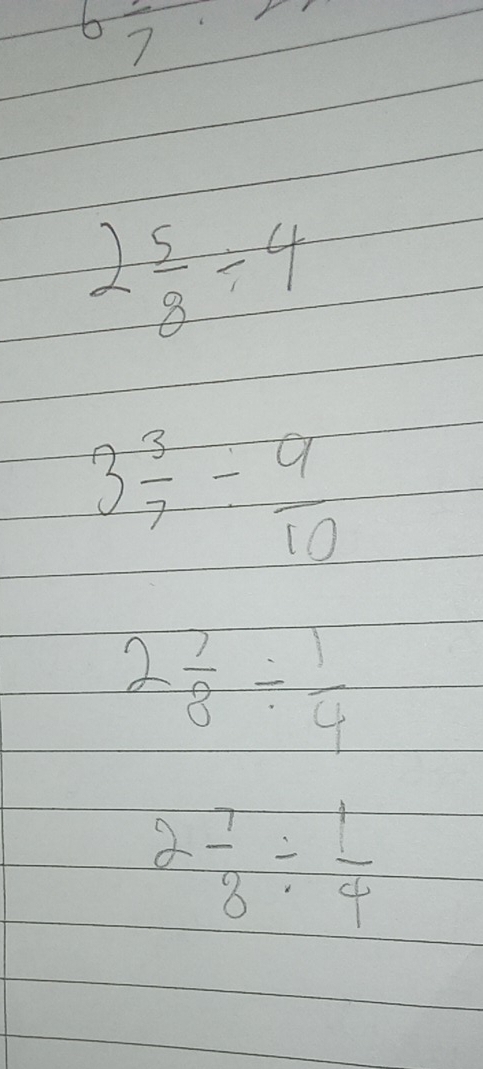 2 5/8 ÷ 4
3 3/7 ÷ 9/10
2 7/8 ÷ 1/4
2 7/8 ÷ 1/4